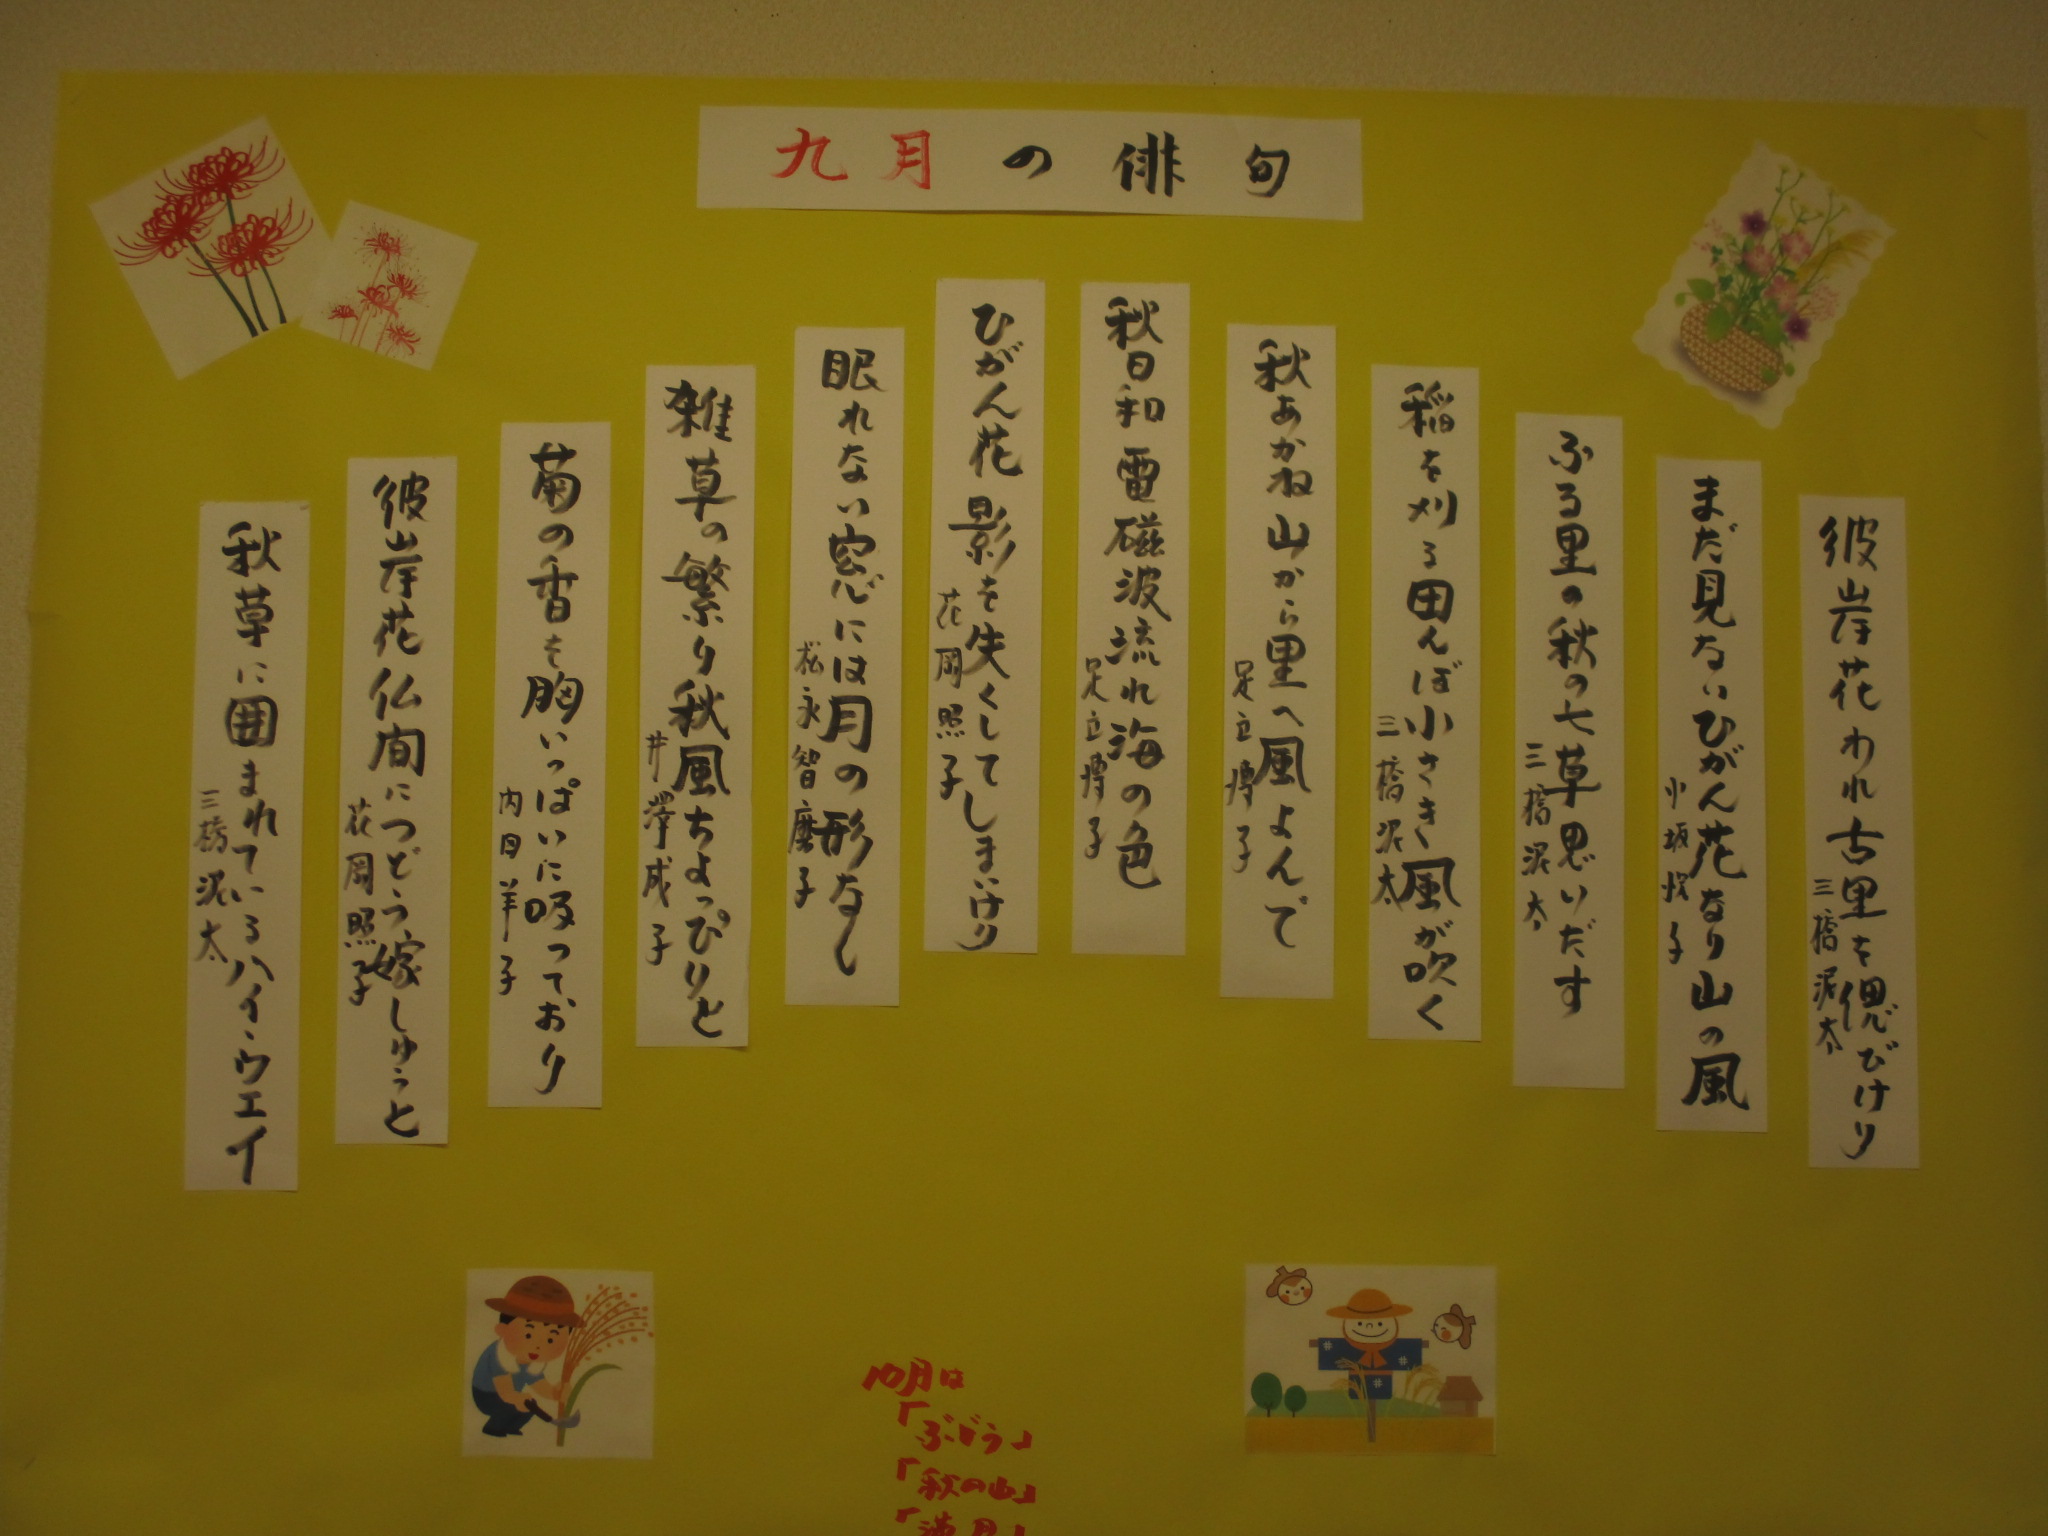 九月の俳句
彼岸花われ古里を偲びけり
三橋泥太
まだ見ないひがん花なり山の風
小坂悦子
ふる里の秋の七草思いだす
三橋泥太
稲を刈る田んぼ小さき風が吹く
三橋泥太
秋あかね山から里へ風よんで
足立博子
秋日和電磁波流れ海の色
足立博子
ひがん花影を失くしてしまいけり
花岡照子
眠れない窓には月の形なし
松永智磨子
雑草の繁り秋風ちょっぴりと
井澤成子
菊の香を胸いっぱいに吸っており
内田羊子
彼岸花仏間につどう嫁しゅうと
花岡照子
秋草に囲まれているハイ・ウエイ
三橋泥太
10月は
「ぶどう」
「秋の山」
「満月」